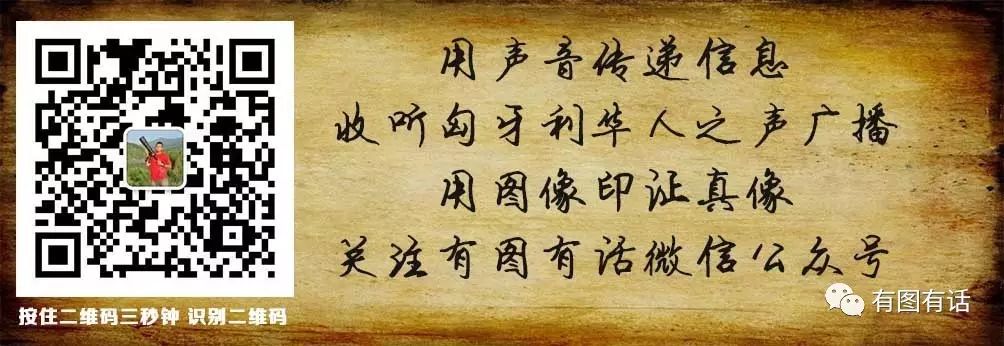 用声音传递信息
收听匈牙利华人之声广播
用图像印证真像
关注有图有话微信公众号
按住二维码三秒钟 识别二维码
有图有话